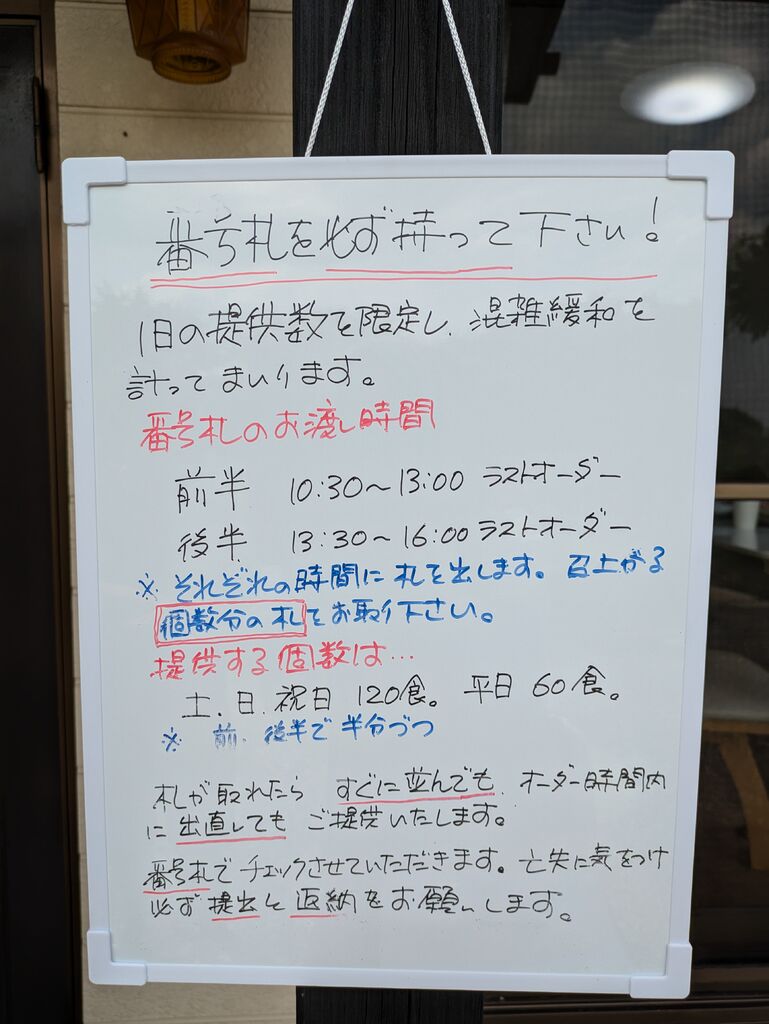 番号札を必ず持って下さい!
1日の提供数を限定し、混雑緩和を
計ってまいります。
番号札のお渡し時間
前半 10:30~13:00 ラストオーダー
後半 13:30~16:00 ラストオーダー
※ それぞれの時間に札を出します。召上がる
個数分の札をお取り下さい。
提供する個数は…
土、日、祝日 120食。 平日 60食。
※ 前、後半で半分づつ
札が取れたら すぐに並んでも、オーダー時間内
に出直しても ご提供いたします。
番号札でチェックさせていただきます。亡失に気をつけ
必ず提出と返納をお願いします。